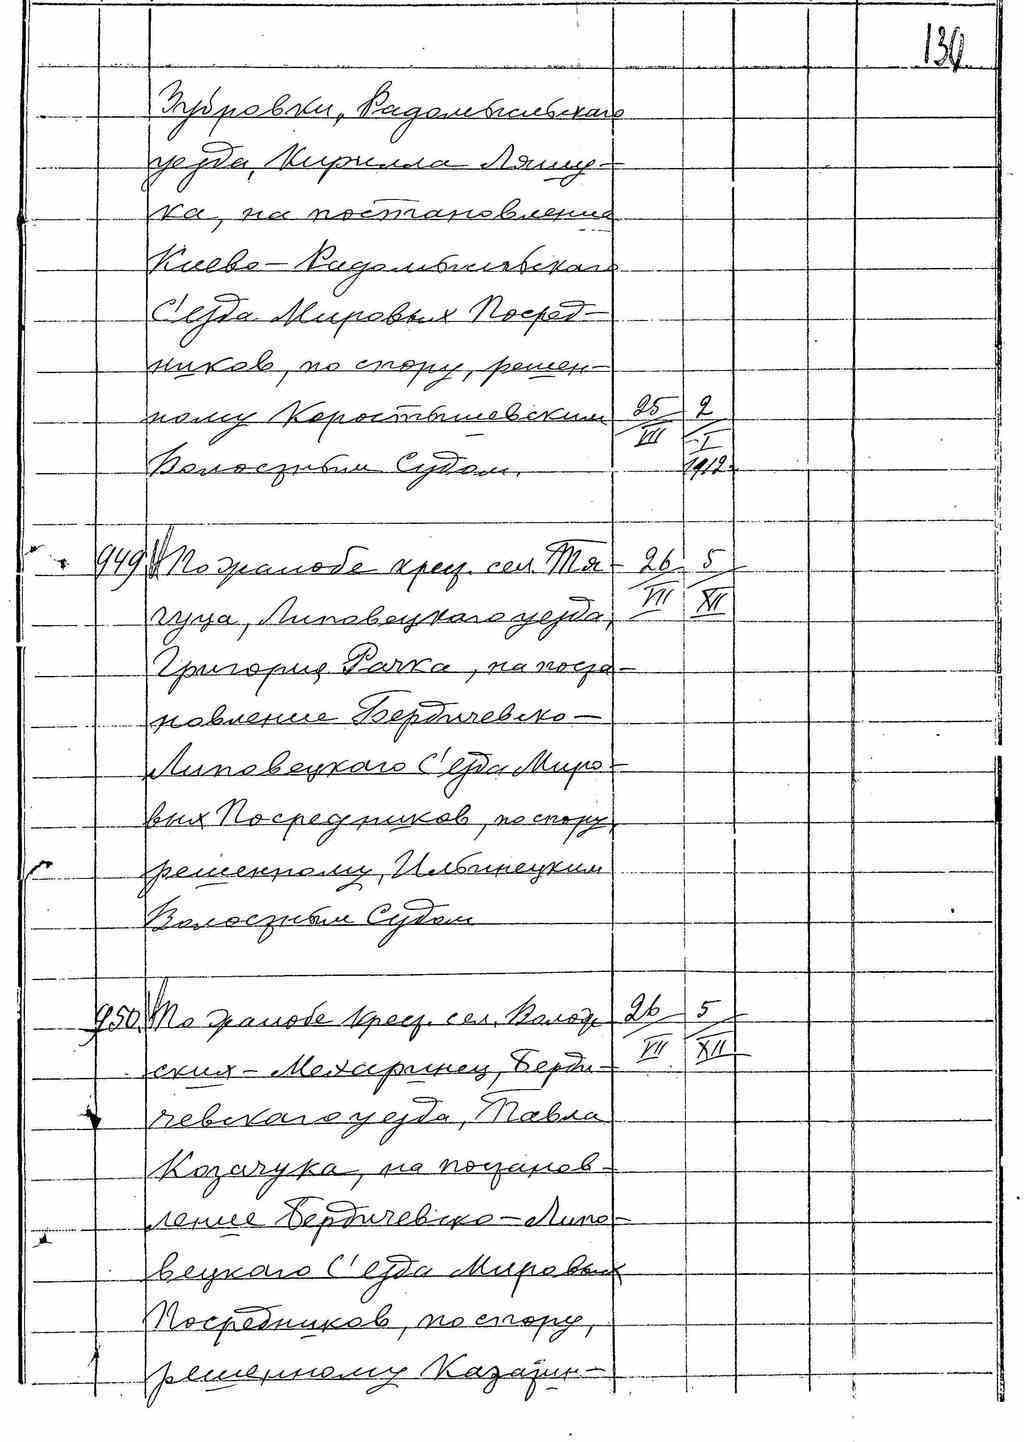 130
Зубровки, Радомысльскаго
уезда, Кирилла Ляшу-
ка, на постановление
Киево-Радомысльскаго
С'езда Мировых Посред-
ников, по спору, решен-
ному Коростышевским 25/VII 2/I
Волостным Судом. 1912.
949. По жалобе крест. сел. Тя- 26/VII 5/XII
гуца, Липовецкаго уезда,
Григория Рачка, на поста-
новление Бердичевско-
Липовецкаго С'езда Миро-
вых Посредников, по спору,
решенному, Ильинецким
Волостным Судом
950. По жалобе крест. сел. Волож- 26/VII 5/XII
ских-Мехаринец, Берди-
чевскаго уезда, Павла
Козачука, на постанов-
ление Бердичевско-Липо-
вецкаго С'езда Мировых
Посредников, по спору,
решенному Казатин-